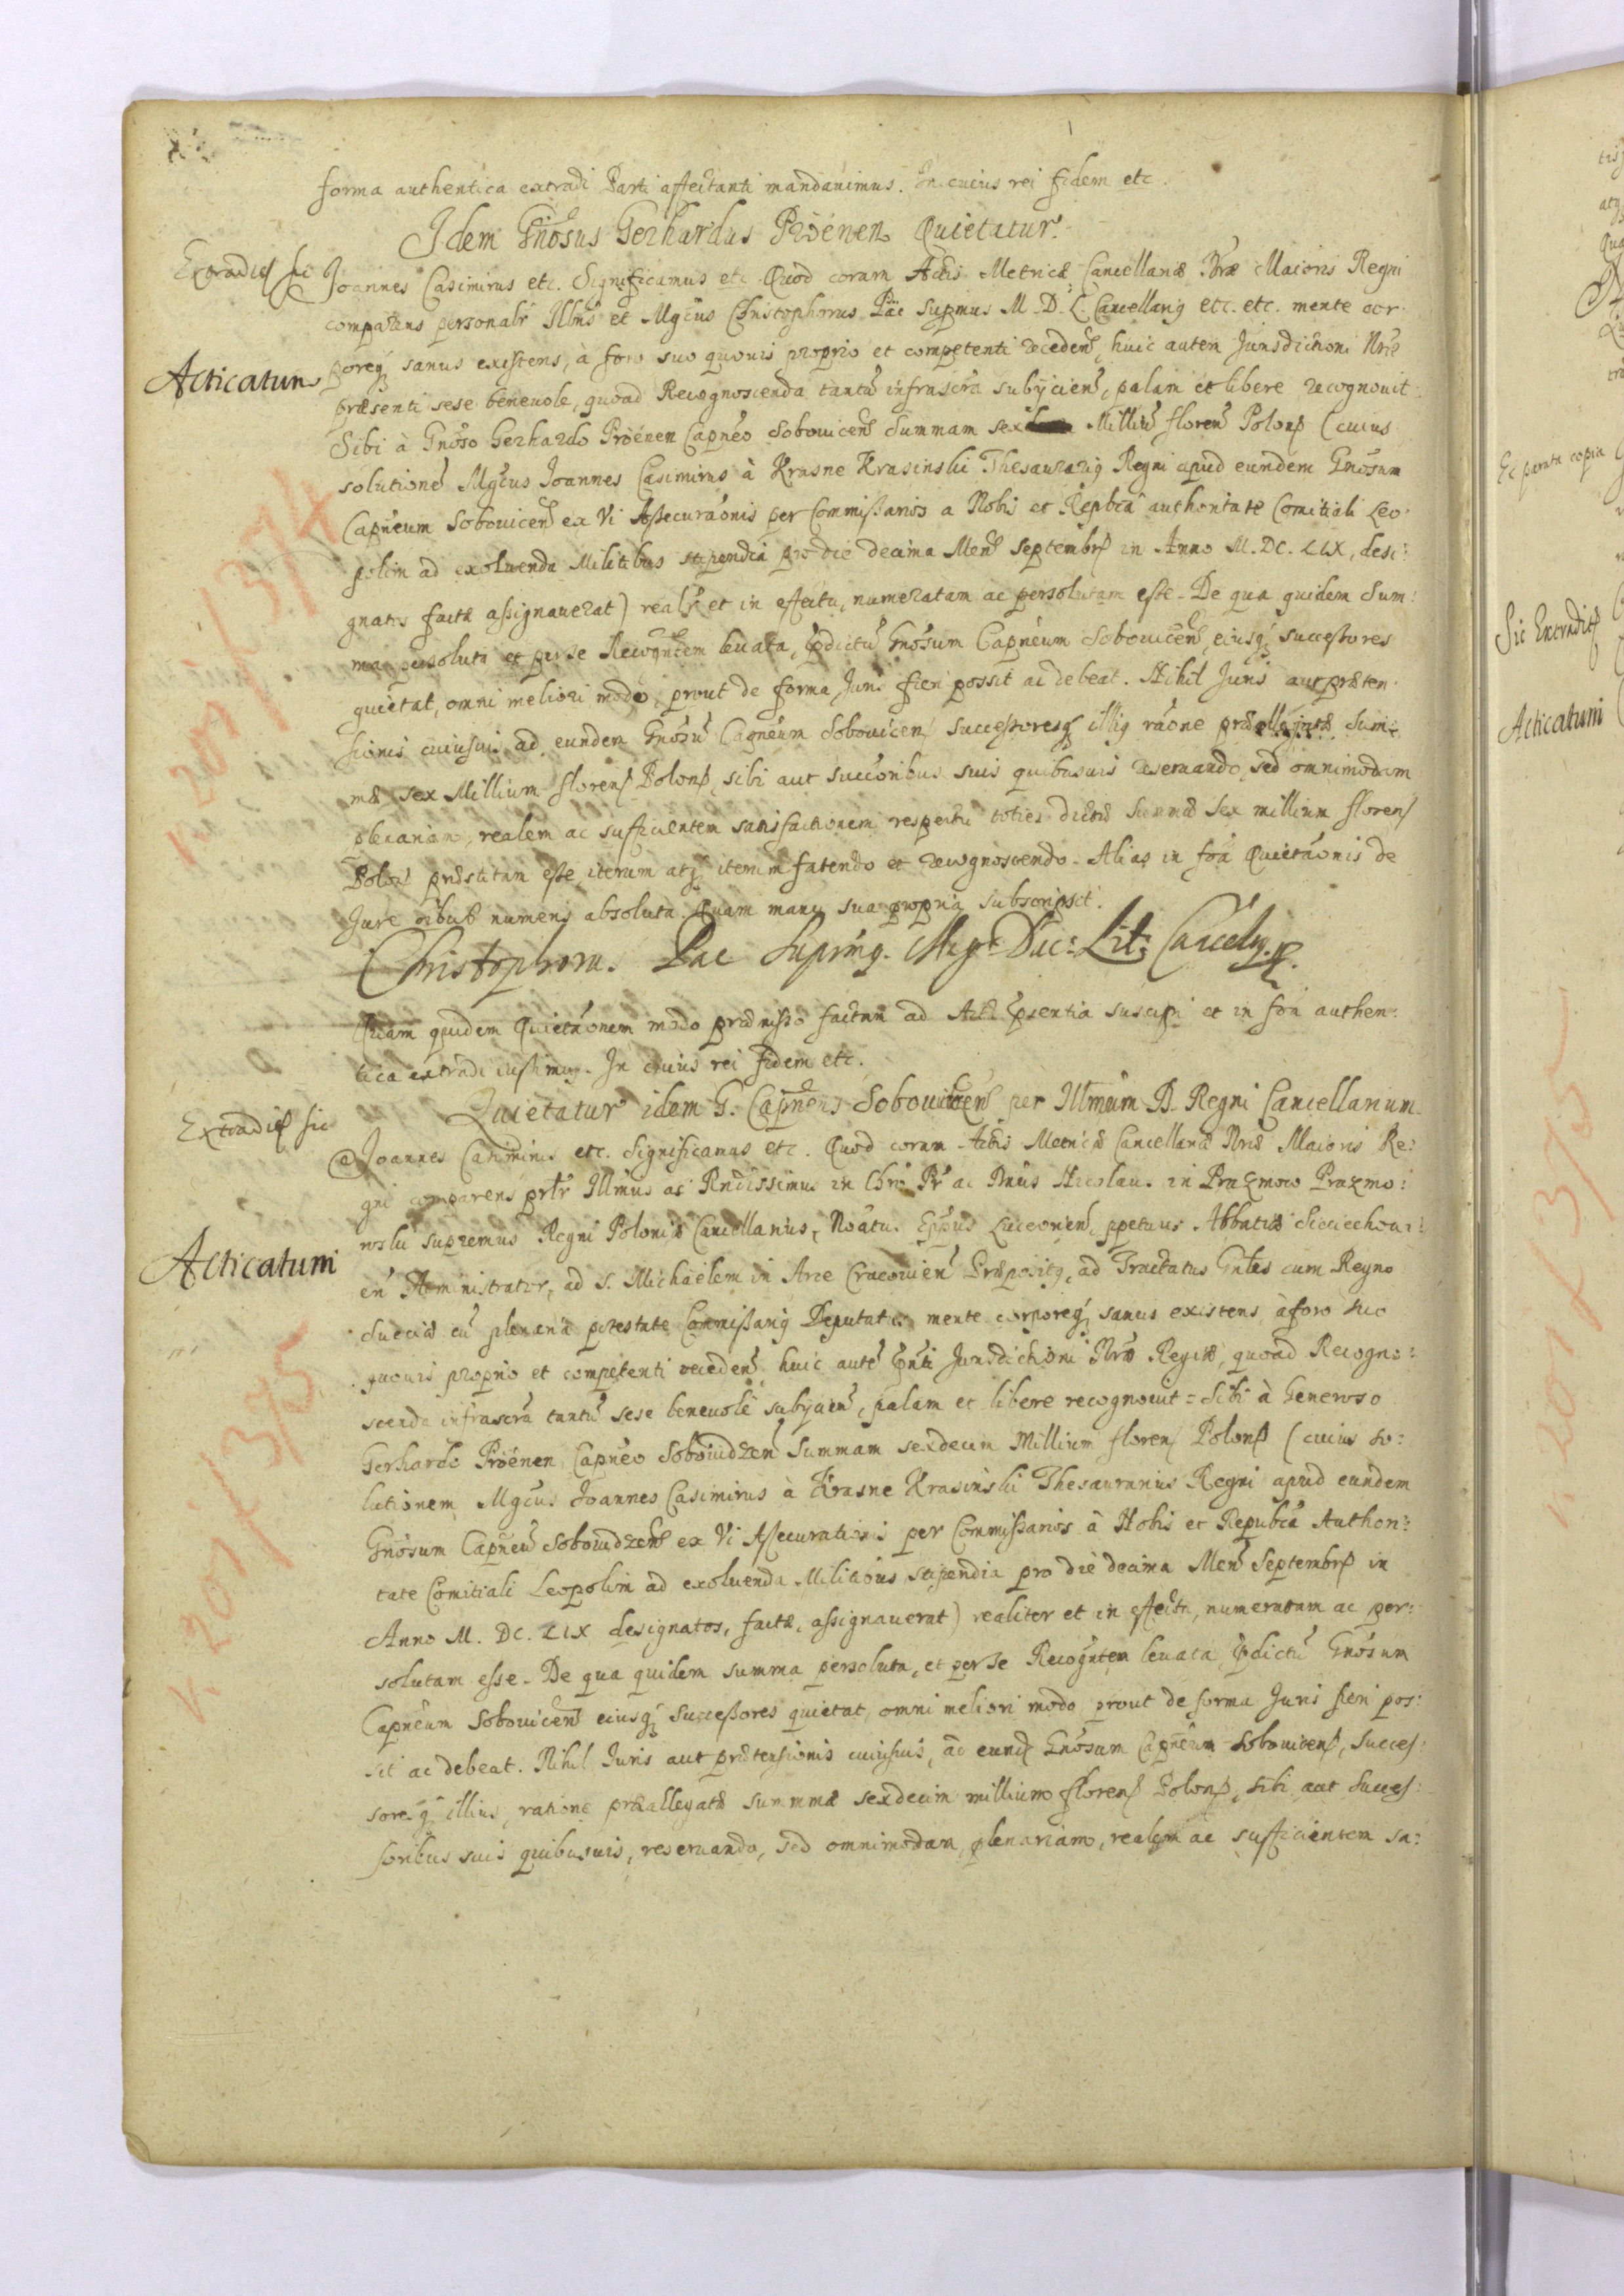 forma authentica extradi Parti affectanti mandauimus. In cuius rei fidem etc.
Idem Gnosus Gerhardus Pröenen Quietatur.
Extradit sic
Joannes Casimirus etc. Significamus etc. Quod coram Actis Metricæ Cancellariæ Nræ Maioris Regni
comparens personalr Illmus et Mgcus Christophorus Pac Supmus M. D. L. Cancellarius etc. etc. mente cor-
Acticatum
poreq sanus existens, à foro suo quouis proprio et competenti recedens, huic autem Jurisdictioni Nræ
præsenti sese beneuole, quoad Recognoscenda tantu infrascra subijciens, palam et libere recognouit:
Sibi à Gnoso Gerhardo Pröenen Capneo Sobouicen Summam sex Milliu floren Polon (cuius
solutione Mgcus Joannes Casimirus à Krasne Krasinski Thesaurarius Regni apud eundem Gnosum
Capneum Sobouicen ex Vi Assecuraonis per Commissarios a Nobis et Repbca authoritate Comitiali Leo-
polim ad exoluenda Militibus stipendia pro die decima Mens Septembr in Anno M. DC. LIX, desi:
gnatos factæ assignauerat) realr et in effectu, numeratam ac persolutam esse. De qua quidem Sum:
ma persoluta et per se Recogntem leuata, pdictu Gnosum Capneum Sobouicen, eiusq successores
quietat, omni meliori modo, prout de forma Juris fieri possit ac debeat. Nihil Juris aut præten-
sionis cuiusuis ad eundem Gnosu Capneum Sobouicen successoresq illius raone præallegatæ Sum:
mæ sex Millium floren Polon, sibi aut succoribus suis quibusuis reseruando, sed omnimodam
plenariam, realem ac sufficientem satisfactionem respectu toties dictæ Summæ sex millium floren
Polon præstitam esse iterum atq iterum fatendo et recognoscendo. Alias in foa Quietaonis de
Jure oibus numeris absoluta. Quam manu sua propria subscripsit.
Christophorus Pac Suprmus Mag. Duc: Lit: Cancelus
Quam quidem Quietaonem modo præmisso factam ad Acta psentia suscepi et in foa authen:
tica extradi iussimus. In cuius rei fidem etc.
Quietatur idem G. Capneus Sobouicen per Illmum D. Regni Cancellarium.
Extradit sic
Joannes Casimirus etc. Significamus etc. Quod coram Actis Metricæ Cancellariæ Nræ Maioris Re:
gni comparens prlr Illmus ac Rndissimus in Chro Pr ac Dnus Nicolaus in Prazmow Prazmo:
wski supremus Regni Poloniæ Cancellarius, Noatus Eppus Luceorien, ppetuus Abbatiæ Sieciechoui:
Acticatum
en Administrator, ad S. Michaelem in Arce Cracouien Præpositus, ad Tractatus Gnles cum Regno
Sueciæ cu plenaria potestate Commissarius Deputatus mente corporeq sanus existens, à foro suo
quouis proprio et competenti recedens, huic aute pnti Jurisdictioni Nræ Regiæ, quoad Recogno:
scenda infrascra tantu sese beneuole subijciens, palam et libere recognouit = Sibi à Generoso
Gerhardo Pröenen Capneo Sobouidzen Summam sexdecim Millium floren Polon (cuius so:
lutionem Mgcus Joannes Casimirus à Krasne Krasinski Thesaurarius Regni apud eundem
Gnosum Capneu Sobouidzen ex Vi Assecurationis per Commissarios à Nobis et Republca Authori:
tate Comitiali Leopolim ad exoluenda Militibus stipendia pro die decima Mens Septembr in
Anno M. DC. LIX designatos, factæ, assignauerat) realiter et in effectu, numeratam ac per:
solutam esse. De qua quidem summa persoluta, et per se Recogntem leuata pdictu Gnosum
Capneum Sobouicen eiusq Successores quietat, omni meliori modo prout de forma Juris fieri pos:
sit ac debeat. Nihil Juris aut prætensionis cuiusuis, ad eund Gnosum Capneum Sobouicen, Succes:
soresq illius, ratione præallegatæ summmæ sexdecim millium floren Polon, sibi aut Succes:
soribus suis quibusuis, reseruando, sed omnimodam, plenariam, realem ac sufficientem sa:
k. 201/374
k. 201/375
Sic Extradit
Acticatum